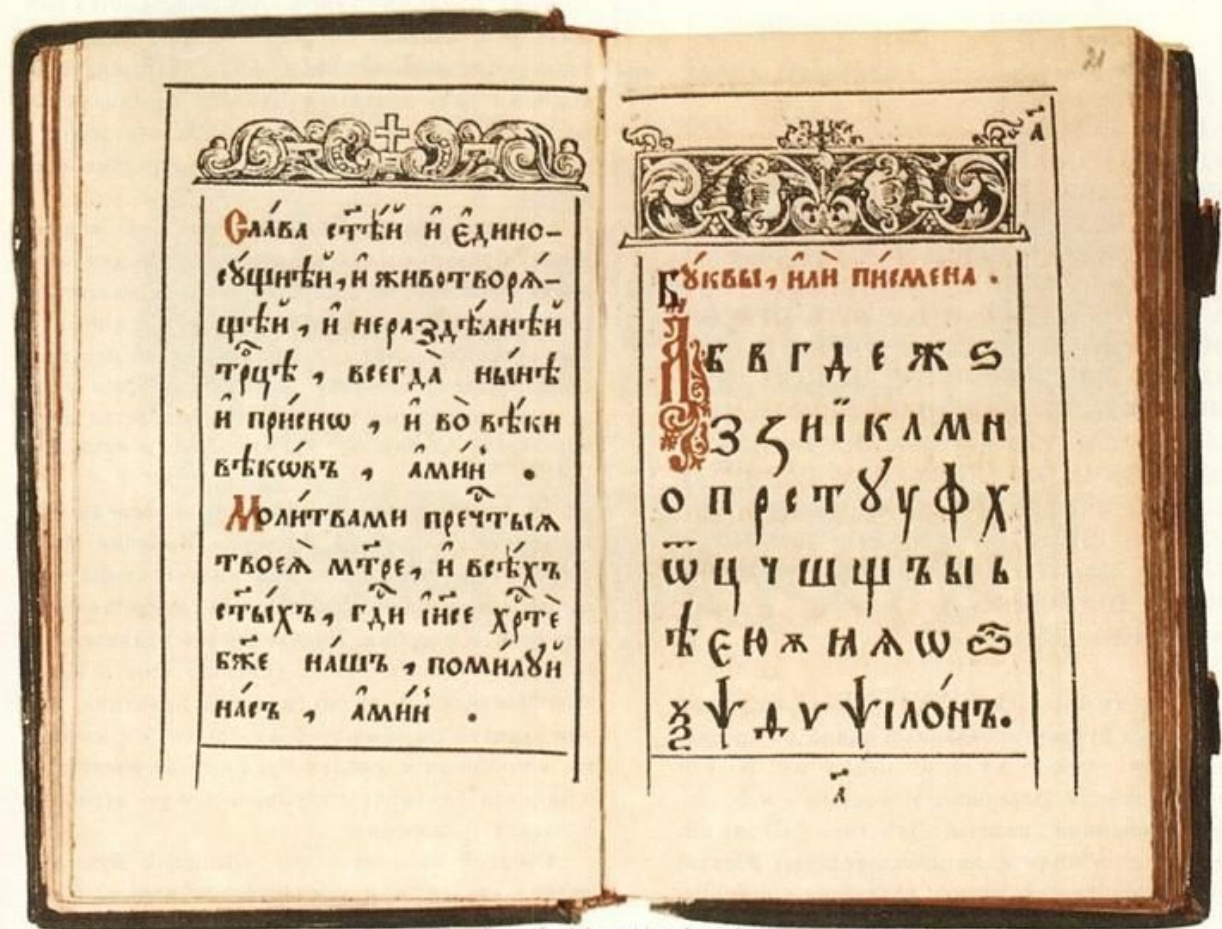 Сла́ва ст҃ѣ́й и҆ є҆дино-
сꙋ́щнѣй, и҆ животворѧ́-
щѣй, и҆ нераздѣ́лнѣй
трⷪ҇цѣ, всегда̀ ны́нѣ
и҆ при́снѡ, и҆ во̀ вѣ́ки
вѣкѡ́въ, а҆ми́нь.
Моли́твами пречⷭ҇тыѧ
твоеѧ̀ мт҃ре, и҆ всѣ́хъ
ст҃ы́хъ, гд҇и і҆и҃се хрⷭ҇тѐ
бж҃е на́шъ, поми́лꙋй
на́съ, а҆ми́нь.
21
а҃
Бꙋ́квы, и҆лѝ пи́смена.
А б в г д е ж ѕ
з ꙁ и ї к л м н
о п р с т ꙋ у ф х
ѿ ц ч ш щ ъ ы ь
ѣ є ю ѫ ꙗ ѧ ѡ ѽ
ѯ ѱ ѳ ѵ ѱіло́нъ.
а҃